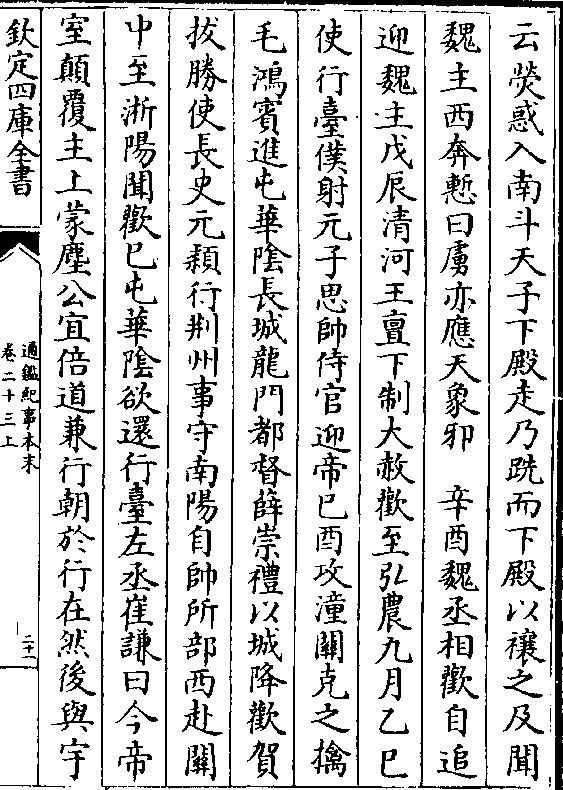 云熒惑入南斗天子下殿走乃跣而下殿以禳之及聞
魏主西奔慙曰虜亦應天象邪　辛酉魏丞相歡自追
迎魏主戊辰清河王亶下制大赦歡至弘農九月乙巳
使行臺僕射元子思帥侍官迎帝已酉攻潼關克之擒
毛鴻賓進屯華陰長城龍門都督薛崇禮以城降歡賀
拔勝使長史元頴行荆州事守南陽自帥所部西赴關
中至淅陽聞歡已屯華陰欲還行臺左丞崔謙曰今帝
室顛覆主上蒙塵公宜倍道兼行朝於行在然後與宇
欽定四庫全書
通鑑紀事本末
卷二十三上
二十二